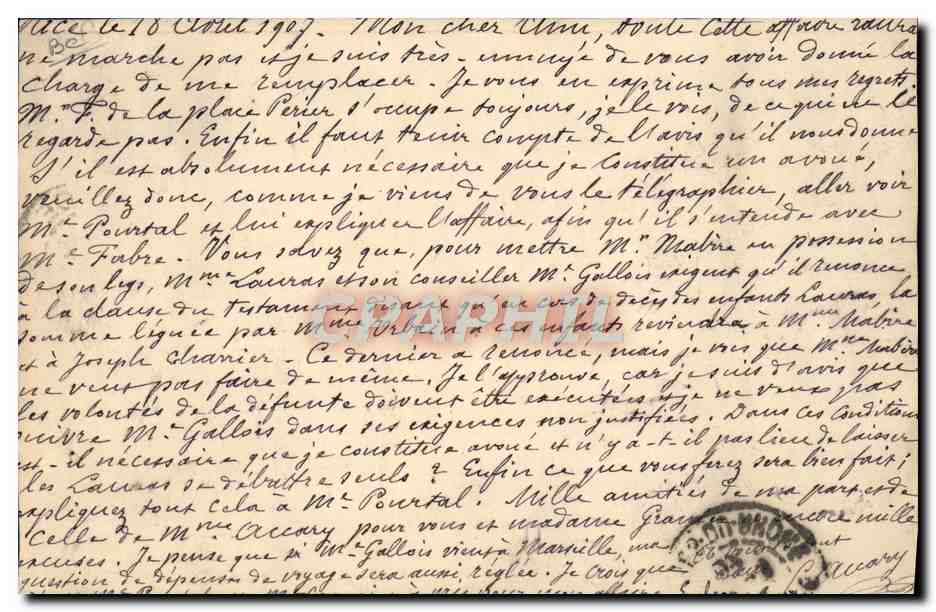 Nice le 18 Août 1907. Mon cher Ami, toute cette affaire Lauras
ne marche pas et je suis très-ennuyé de vous avoir donné la
charge de me remplacer. Je vous en exprime tous mes regrets.
M.me F. de la place Perier s'occupe toujours, je le vois, de ce qui ne le
regarde pas. Enfin il faut tenir compte de l'avis qu'il nous donne
S'il est absolument nécessaire que je constitue un avoué,
veuillez donc, comme je viens de vous le télégraphier, aller voir
Mr. Pourtal et lui expliquer l'affaire, afin qu'il s'entende avec
Mr. Fabre. Vous savez que, pour mettre Mr Mabire en possession
de son legs, Mme Lauras et son conseiller Mr. Gallois exigent qu'il renonce
à la clause du testament disant qu'en cas de décès des enfants Lauras, la
somme liguée par Mme Urbain à ces enfants reviendra à Mme Mabire
et à Joseph Charrier. Ce dernier a renoncé, mais je vois que Mme Mabire
ne veut pas faire de même. Je l'approuve, car je suis d'avis que
les volontés de la défunte doivent être exécutées et je ne veux pas
suivre Mr. Gallois dans ses exigences non justifiées. Dans ces conditions
est-il nécessaire que je constitue avoué et n'y a-t-il pas lieu de laisser
les Lauras se débattre seuls? Enfin ce que vous ferez sera bien fait;
expliquez tout cela à Mr Pourtal. Mille amitiés de ma part et de
celle de Mme Accary pour vous et madame encore mille
excuses. Je pense que si Mr Gallois vient à Marseille, ma
question de dépenses de voyage sera aussi réglée. Je crois que Accary
BC
CPAPHIL
DU-RHONE